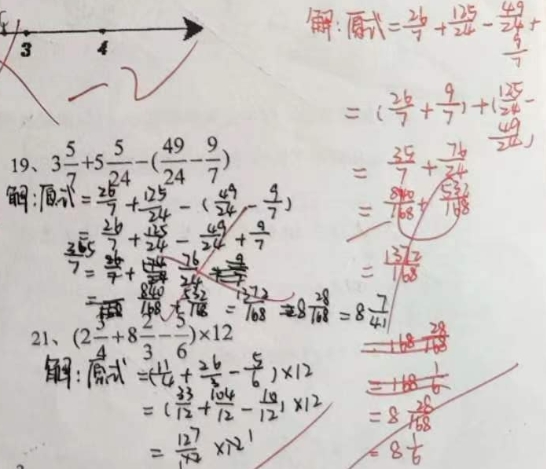 3 4
19、3 5/7 + 5 5/24 - (49/24 - 9/7)
解:原式 = 26/7 + 125/24 - (49/24 - 9/7)
= 26/7 + 125/24 - 49/24 + 9/7
= 26/7 + 76/24
= 840/168 + 532/168 = 1372/168 = 8 28/168 = 8 7/41
21、(2 3/4 + 8 2/3 - 5/6)×12
解:原式 = (11/4 + 26/3 - 5/6)×12
= (33/12 + 104/12 - 10/12)×12
= 127/12 ×12
解:原式 = 26/7 + 125/24 - 49/24 + 9/7
= (26/7 + 9/7) + (125/24 - 49/24)
= 35/7 + 76/24
= 840/168 + 532/168
= 1372/168
= 168 28/168
= 168 1/6
= 8 28/168
= 8 1/6